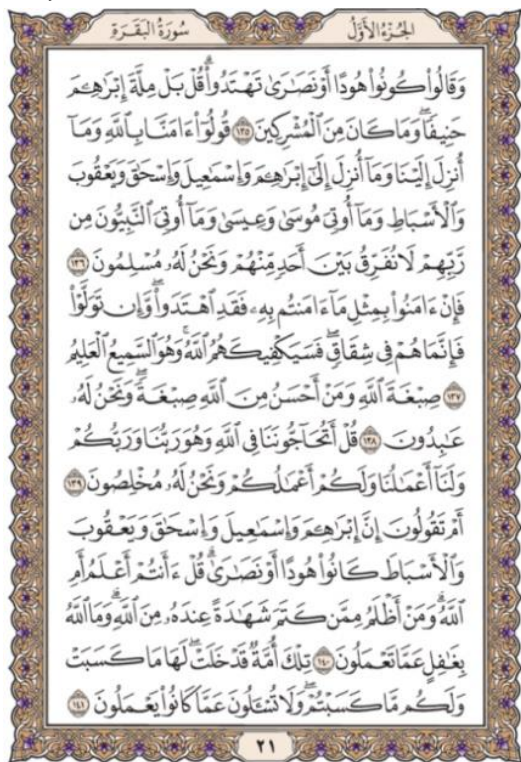 الجزء الأول
سورة البقرة
وَقَالُوا۟ كُونُوا۟ هُودًا أَوْ نَصَٰرَىٰ تَهْتَدُوا۟ ۗ قُلْ بَلْ مِلَّةَ إِبْرَٰهِـۧمَ
حَنِيفًا ۖ وَمَا كَانَ مِنَ ٱلْمُشْرِكِينَ ١٣٥ قُولُوٓا۟ ءَامَنَّا بِٱللَّهِ وَمَآ
أُنزِلَ إِلَيْنَا وَمَآ أُنزِلَ إِلَىٰٓ إِبْرَٰهِـۧمَ وَإِسْمَٰعِيلَ وَإِسْحَٰقَ وَيَعْقُوبَ
وَٱلْأَسْبَاطِ وَمَآ أُوتِىَ مُوسَىٰ وَعِيسَىٰ وَمَآ أُوتِىَ ٱلنَّبِيُّونَ مِن
رَّبِّهِمْ لَا نُفَرِّقُ بَيْنَ أَحَدٍ مِّنْهُمْ وَنَحْنُ لَهُۥ مُسْلِمُونَ ١٣٦
فَإِنْ ءَامَنُوا۟ بِمِثْلِ مَآ ءَامَنتُم بِهِۦ فَقَدِ ٱهْتَدَوا۟ ۖ وَّإِن تَوَلَّوْا۟
فَإِنَّمَا هُمْ فِى شِقَاقٍ ۖ فَسَيَكْفِيكَهُمُ ٱللَّهُ ۚ وَهُوَ ٱلسَّمِيعُ ٱلْعَلِيمُ
١٣٧ صِبْغَةَ ٱللَّهِ ۖ وَمَنْ أَحْسَنُ مِنَ ٱللَّهِ صِبْغَةً ۖ وَنَحْنُ لَهُۥ
عَٰبِدُونَ ١٣٨ قُلْ أَتُحَآجُّونَنَا فِى ٱللَّهِ وَهُوَ رَبُّنَا وَرَبُّكُمْ
وَلَنَآ أَعْمَٰلُنَا وَلَكُمْ أَعْمَٰلُكُمْ وَنَحْنُ لَهُۥ مُخْلِصُونَ ١٣٩
أَمْ تَقُولُونَ إِنَّ إِبْرَٰهِـۧمَ وَإِسْمَٰعِيلَ وَإِسْحَٰقَ وَيَعْقُوبَ
وَٱلْأَسْبَاطَ كَانُوا۟ هُودًا أَوْ نَصَٰرَىٰ ۗ قُلْ ءَأَنتُمْ أَعْلَمُ أَمِ
ٱللَّهُ ۗ وَمَنْ أَظْلَمُ مِمَّن كَتَمَ شَهَٰدَةً عِندَهُۥ مِنَ ٱللَّهِ ۗ وَمَا ٱللَّهُ
بِغَٰفِلٍ عَمَّا تَعْمَلُونَ ١٤٠ تِلْكَ أُمَّةٌ قَدْ خَلَتْ ۖ لَهَا مَا كَسَبَتْ
وَلَكُم مَّا كَسَبْتُمْ ۖ وَلَا تُسْـَٔلُونَ عَمَّا كَانُوا۟ يَعْمَلُونَ ١٤١
٢١